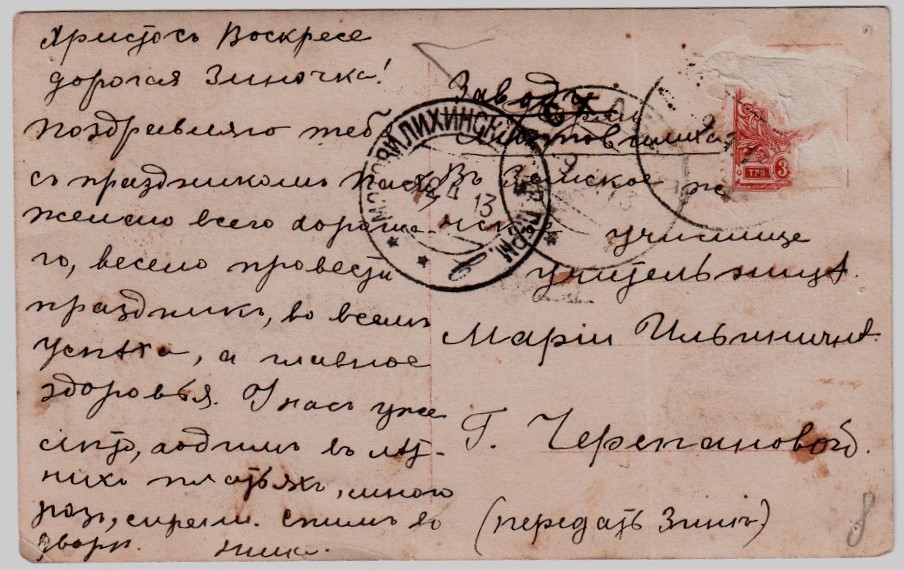 Христосъ Воскресе
дорогая Зиночка!
Поздравляю тебя
съ праздникомъ Пасхи
желаю всего хороша-
го, весело провести
праздникъ, во всемъ
успѣха, а главное
здоровья. У насъ уже
лѣто, ходимъ въ лѣт-
нихъ платьяхъ, много
розъ, сирени. Спимъ во
дворѣ.
Заводъ
Мотовилиха
Въ женское
училище
учительницѣ.
Маріи Ильиничнѣ.
Г. Черепановой.
(передать Зинѣ)
МОТОВИЛИХИНСКІЙ ПЕРМ.
13
ТРИ 3
8